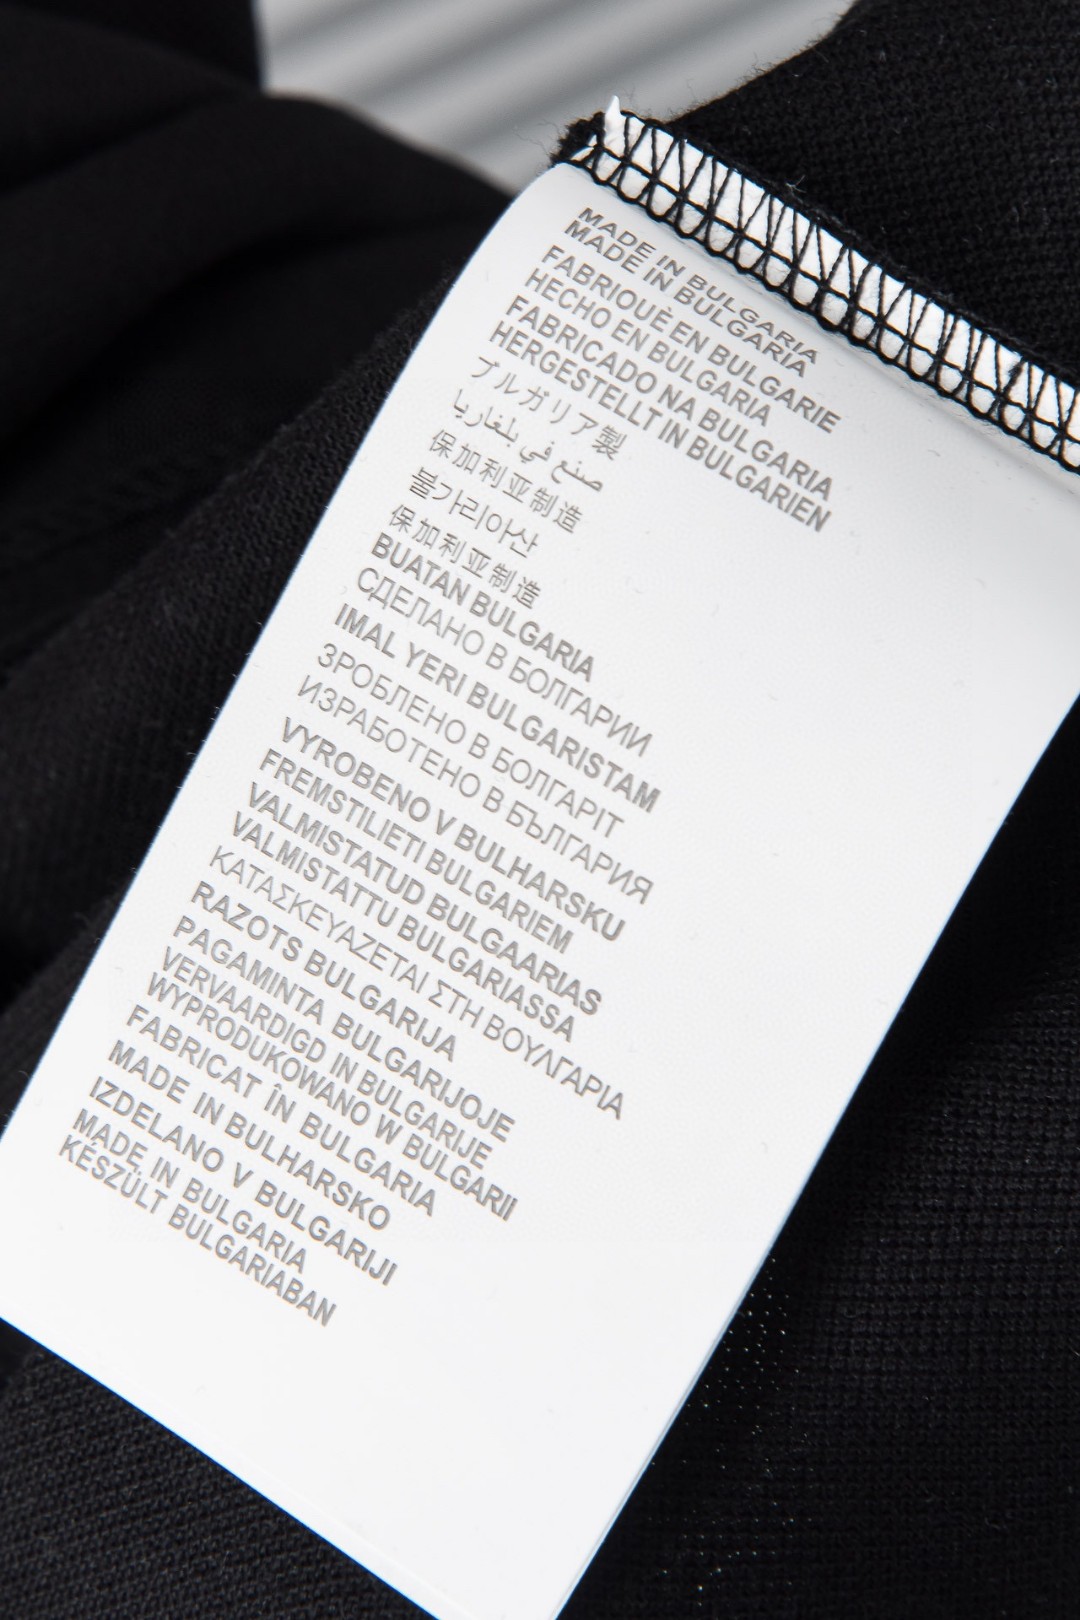 MADE IN BULGARIA
MADE IN BULGARIA
FABRIOUÈ EN BULGARIE
HECHO EN BULGARIA
FABRICADO NA BULGARIA
HERGESTELLT IN BULGARIEN
ブルガリア製
صنع في بلغاريا
保加利亚制造
불가리아산
保加利亚制造
BUATAN BULGARIA
СДЕЛАНО В БОЛГАРИИ
IMAL YERI BULGARISTAM
ЗРОБЛЕНО В БОЛГАРІТ
ИЗРАБОТЕНО В БЪЛГАРИЯ
VYROBENO V BULHARSKU
FREMSTILIETI BULGARIEM
VALMISTATUD BULGAARIAS
VALMISTATTU BULGARIASSA
ΚΑΤΑΣΚΕΥΑΖΕΤΑΙ ΣΤΗ ΒΟΥΛΓΑΡΙΑ
RAZOTS BULGARIJA
PAGAMINTA BULGARIJOJE
VERVAARDIGD IN BULGARIJE
WYPRODUKOWANO W BULGARII
FABRICAT ÎN BULGARIA
MADE IN BULHARSKO
IZDELANO V BULGARIJI
MADE IN BULGARIA
KÉSZÜLT BULGARIABAN